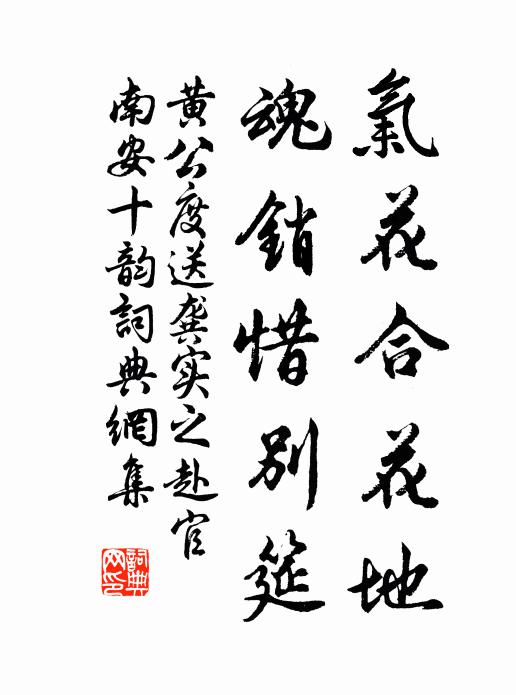 氣花合花地
魂銷惜別筵
黄公度送龚实之赴官
南安十韵詞典網集
詞典
网印